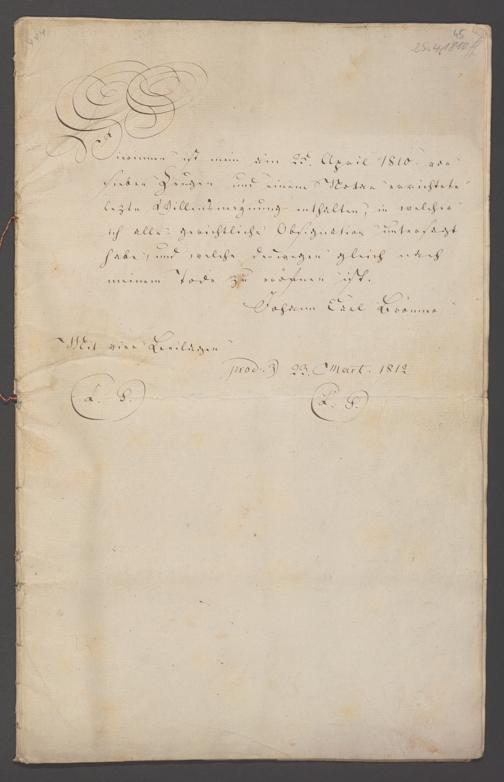 45
25.4.1810
Innen ist mein am 25. April 1810 vor
sieben Zeugen und einem Notar errichtete
lezte Willensmeynung enthalten, in welcher
ich alle gerichtliche Obsignation untersagt
habe, und welche deswegen gleich nach
meinem Tode zu eröfnen ist.
Johann Carl Brönner
Mit vier Beilagen
prod. 23. Mart. 1812
L. S. L. S.